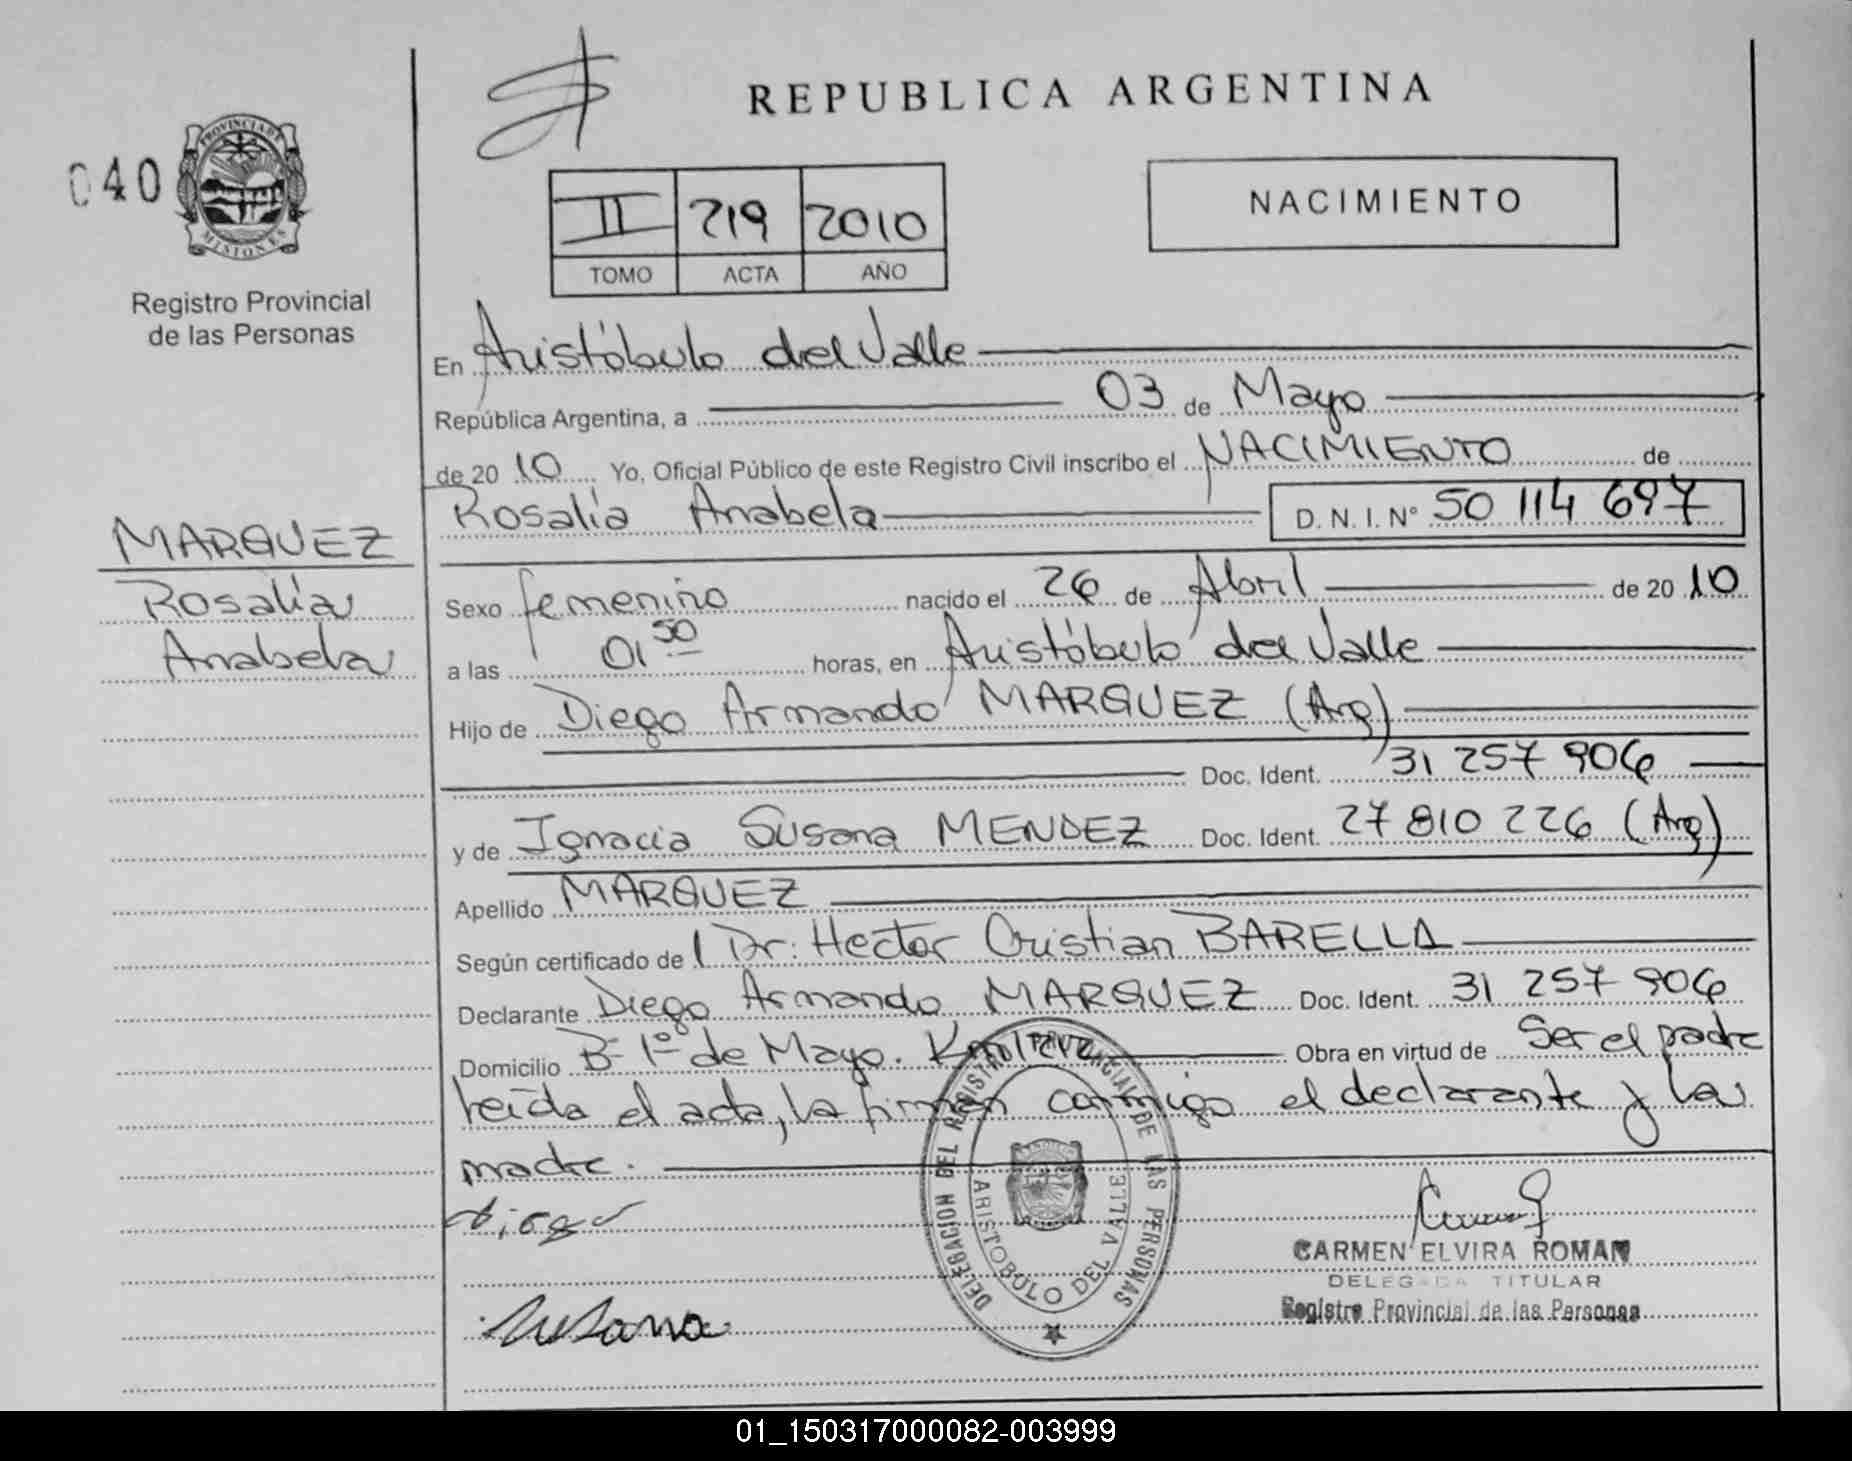 REPUBLICA ARGENTINA
040
PROVINCIA DE
MISIONES
Registro Provincial
de las Personas
II 719 2010
TOMO ACTA AÑO
NACIMIENTO
En Aristóbulo del Valle
República Argentina, a 03 de Mayo
de 2010 Yo, Oficial Público de este Registro Civil inscribo el NACIMIENTO de
Rosalía Anabela D. N. I. N° 50 114 697
MARQUEZ
Rosalía
Anabela
Sexo femenino nacido el 26 de Abril de 2010
a las 01 50 horas, en Aristóbulo del Valle
Hijo de Diego Armando MARQUEZ (Arg)
Doc. Ident. 31 257 906
y de Ignacia Susana MENDEZ Doc. Ident. 27 810 226 (Arg)
Apellido MARQUEZ
Según certificado de Dr: Hector Cristian BARELLA
Declarante Diego Armando MARQUEZ Doc. Ident. 31 257 906
Domicilio B- 1º de Mayo. Obra en virtud de Ser el padre
leída el acta, la firman conmigo el declarante y la
madre.
diego
Susana
DELEGACION DEL REGISTRO PROVINCIAL DE LAS PERSONAS
ARISTOBULO DEL VALLE
CARMEN ELVIRA ROMAN
DELEGADA TITULAR
Registro Provincial de las Personas
01_150317000082-003999